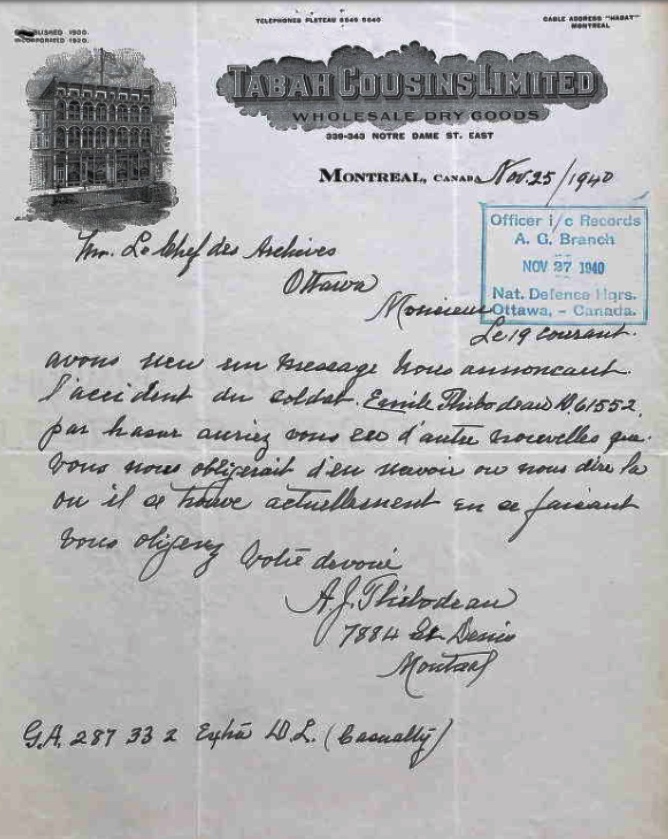 TELEPHONES PLATEAU 8545 8546
CABLE ADDRESS "HABAT"
MONTREAL
INCORPORATED 1920.
TABAH COUSINS LIMITED
WHOLESALE DRY GOODS
339-343 NOTRE DAME ST. EAST
MONTREAL, CANADA Nov. 25/1940
Officer i/c Records
A. G. Branch
NOV 27 1940
Nat. Defence Hqrs.
Ottawa, - Canada.
Mr. Le Chef des Archives
Ottawa
Monsieur
Le 19 courant.
avons reu un message nous annoncant
l'accident du soldat Emile Thibodeau D.61552
par hasar auriez vous eu d'autre nouvelles que
vous nous obligerait d'en recevoir ou nous dire la
ou il se trouve actuellement en se faisant
vous oligerez
Votre devoué
A.J. Thibodeau
7884 St Denis
Montreal
G.A. 287 33 2 Extra D.L. (Casualty)